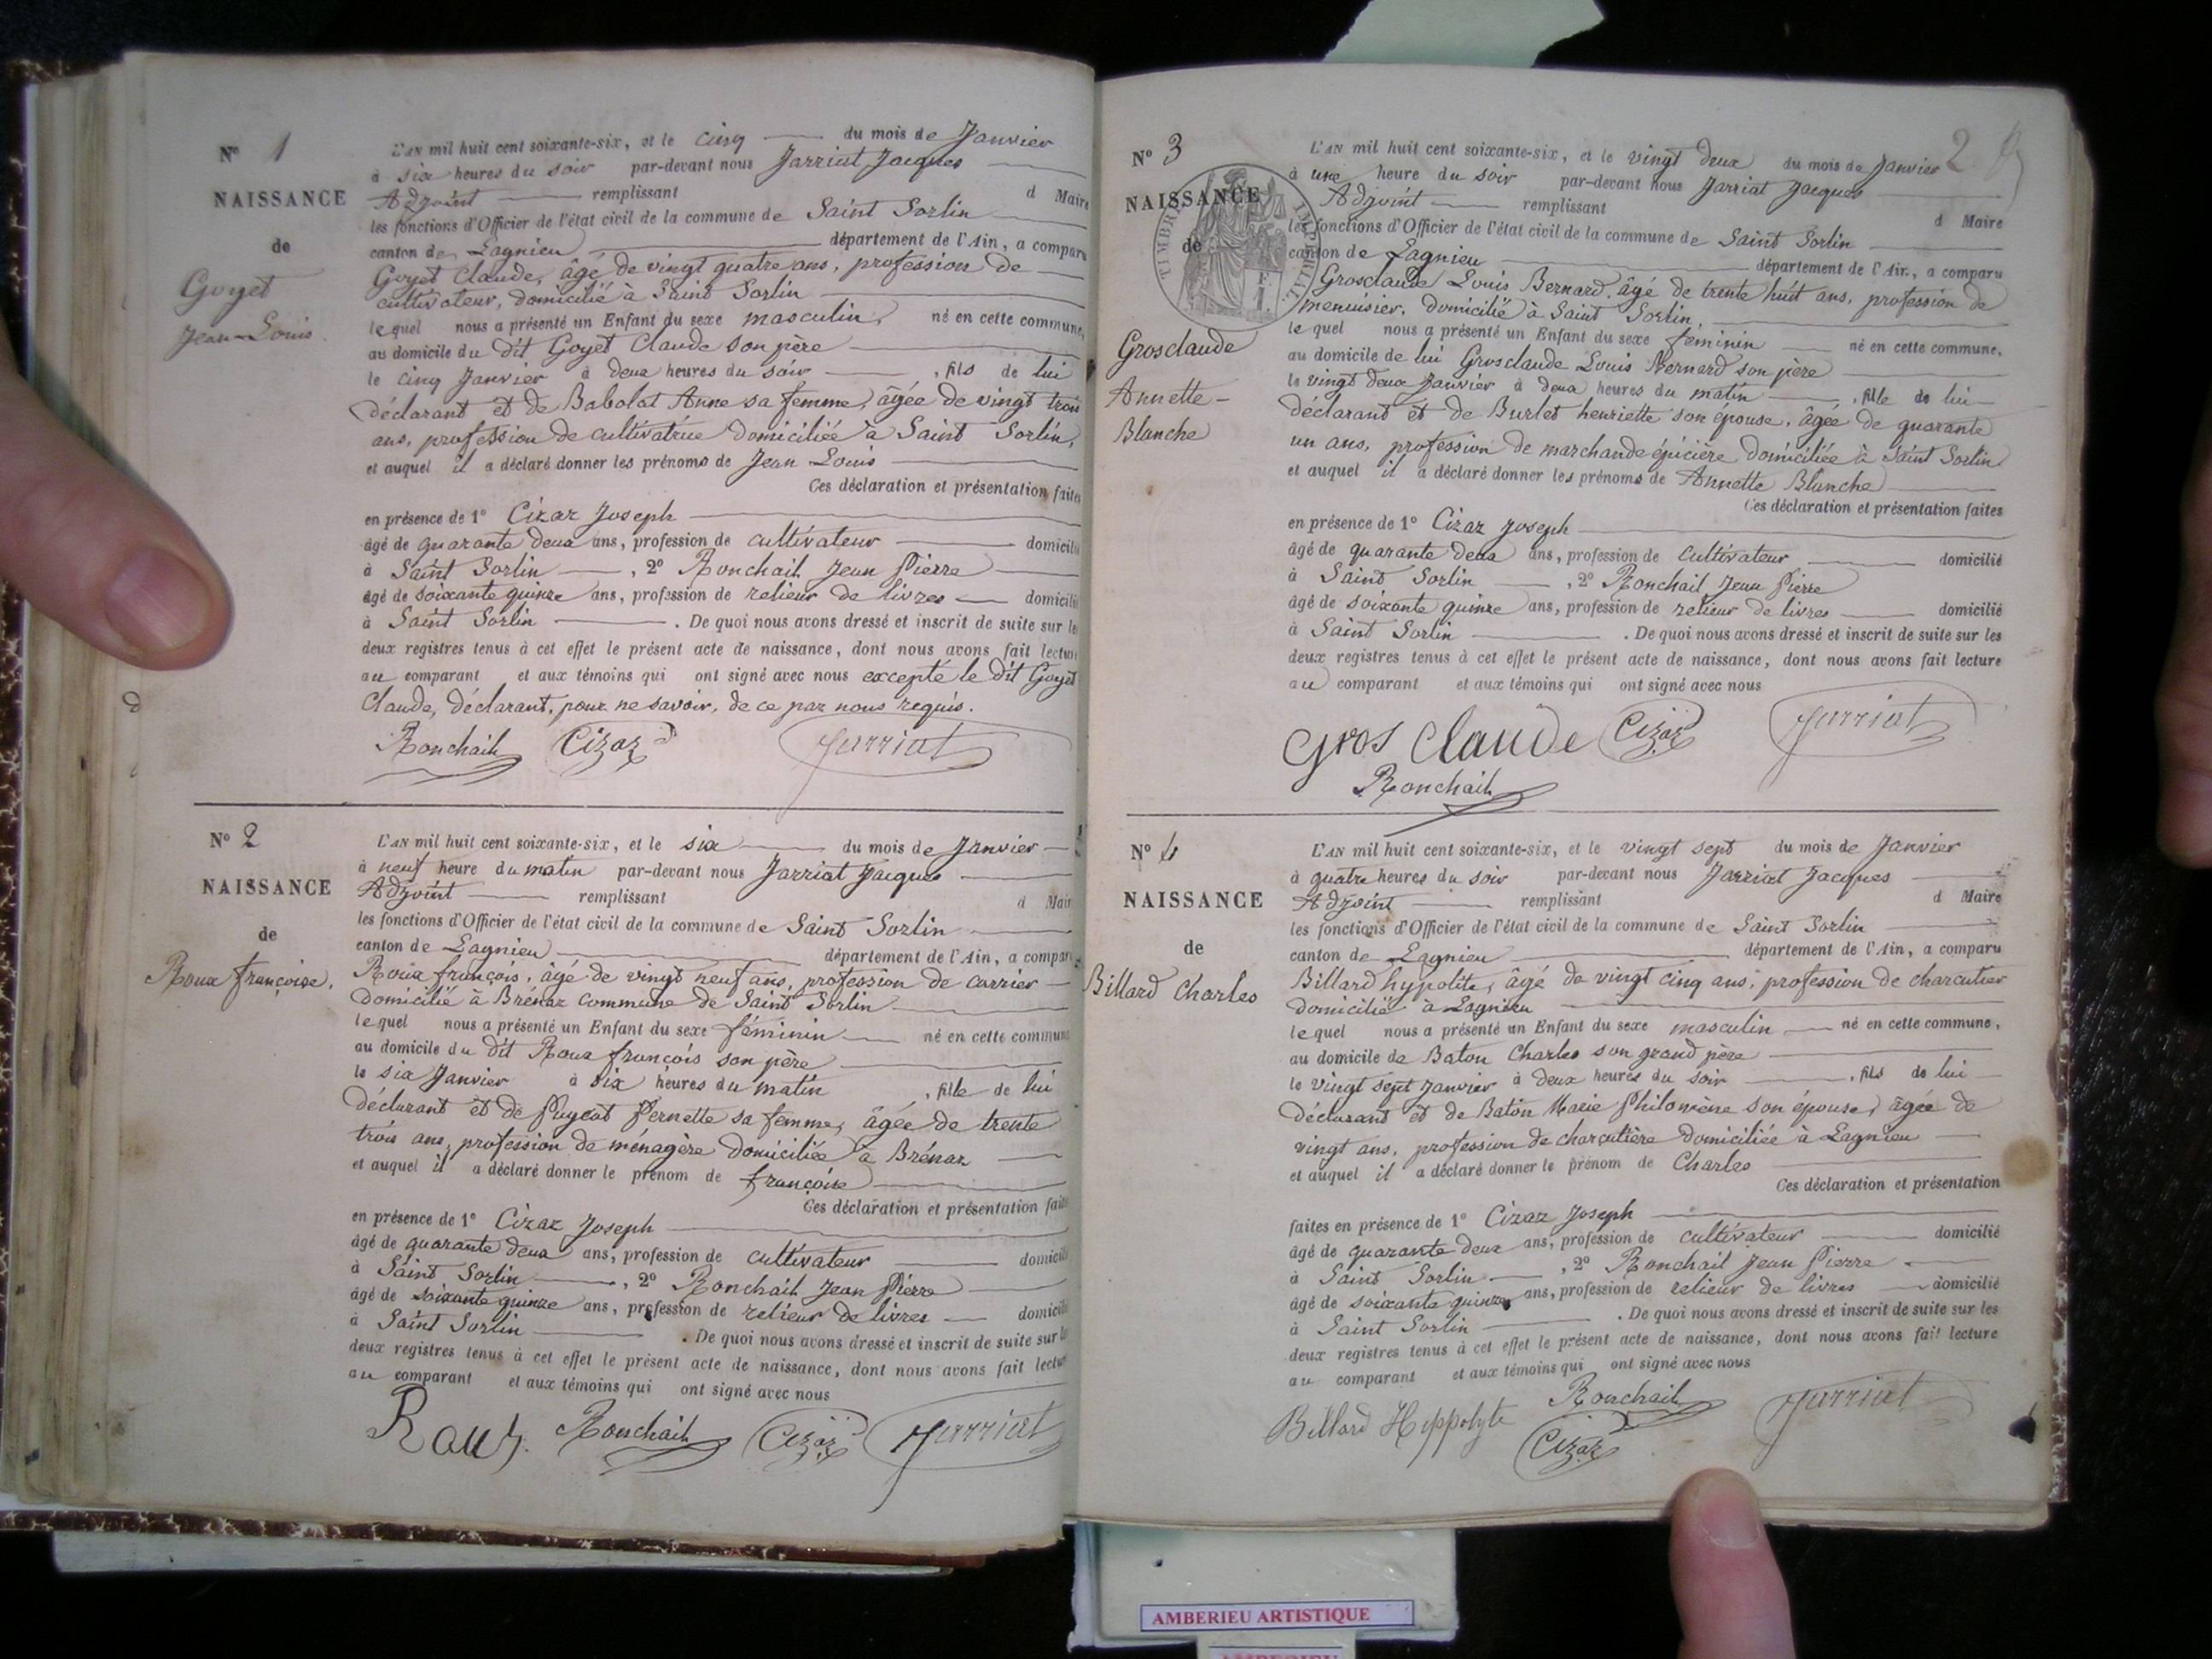 Nº 1
NAISSANCE
de
Goyet
Jean-Louis.
L'AN mil huit cent soixante-six, et le cinq du mois de Janvier
à six heures du soir par-devant nous Jarriat Jacques
Adjoint remplissant d Maire
les fonctions d'Officier de l'état civil de la commune de Saint Sorlin
canton de Lagnieu département de l'Ain, a comparu
Goyet Claude, âgé de vingt quatre ans, profession de
cultivateur, domicilié à Saint Sorlin
lequel nous a présenté un Enfant du sexe masculin, né en cette commune,
au domicile du dit Goyet Claude son père
le cinq Janvier à deux heures du soir, fils de lui
déclarant et de Babolat Anne sa femme, âgée de vingt trois
ans, profession de cultivatrice domiciliée à Saint Sorlin,
et auquel il a déclaré donner les prénoms de Jean Louis
Ces déclaration et présentation faites
en présence de 1º Cizaz Joseph
âgé de quarante deux ans, profession de cultivateur domicilié
à Saint Sorlin, 2º Ronchail Jean Pierre
âgé de soixante quinze ans, profession de relieur de livres domicilié
à Saint Sorlin. De quoi nous avons dressé et inscrit de suite sur les
deux registres tenus à cet effet le présent acte de naissance, dont nous avons fait lecture
au comparant et aux témoins qui ont signé avec nous excepté le dit Goyet
Claude, déclarant, pour ne savoir, de ce par nous requis.
Ronchail Cizaz Jarriat
Nº 2
NAISSANCE
de
Roux françoise.
L'AN mil huit cent soixante-six, et le six du mois de Janvier
à neuf heure du matin par-devant nous Jarriat Jacques
Adjoint remplissant d Mair
les fonctions d'Officier de l'état civil de la commune de Saint Sorlin
canton de Lagnieu département de l'Ain, a compar
Roux françois, âgé de vingt neuf ans, profession de carrier
domicilié à Brénaz commune de Saint Sorlin
lequel nous a présenté un Enfant du sexe féminin né en cette commun
au domicile du dit Roux françois son père
le six Janvier à six heures du matin, fille de lui
déclarant et de Pernette sa femme, âgée de trente
trois ans, profession de ménagère domiciliée à Brénaz
et auquel il a déclaré donner le prénom de françoise
Ces déclaration et présentation faite
en présence de 1º Cizaz Joseph
âgé de quarante deux ans, profession de cultivateur domicili
à Saint Sorlin, 2º Ronchail Jean Pierre
âgé de soixante quinze ans, profession de relieur de livres domicili
à Saint Sorlin. De quoi nous avons dressé et inscrit de suite sur le
deux registres tenus à cet effet le présent acte de naissance, dont nous avons fait lectu
au comparant et aux témoins qui ont signé avec nous
Roux. Ronchail Cizaz Jarriat
2
Nº 3
NAISSANCE
de
TIMBRE IMPERIAL
Grosclaude
Annette-
Blanche
L'AN mil huit cent soixante-six, et le vingt deux du mois de Janvier
à une heure du soir par-devant nous Jarriat Jacques
Adjoint remplissant d Maire
les fonctions d'Officier de l'état civil de la commune de Saint Sorlin
canton de Lagnieu département de l'Ain, a comparu
Grosclaude Louis Bernard, âgé de trente huit ans, profession de
menuisier, domicilié à Saint Sorlin,
lequel nous a présenté un Enfant du sexe féminin né en cette commune,
au domicile de lui Grosclaude Louis Bernard son père
le vingt deux Janvier à deux heures du matin, fille de lui
déclarant et de Burlet henriette son épouse, âgée de quarante
un ans, profession de marchande épicière domiciliée à Saint Sorlin
et auquel il a déclaré donner les prénoms de Annette Blanche
Ces déclaration et présentation faites
en présence de 1º Cizaz Joseph
âgé de quarante deux ans, profession de cultivateur domicilié
à Saint Sorlin, 2º Ronchail Jean Pierre
âgé de soixante quinze ans, profession de relieur de livres domicilié
à Saint Sorlin. De quoi nous avons dressé et inscrit de suite sur les
deux registres tenus à cet effet le présent acte de naissance, dont nous avons fait lecture
au comparant et aux témoins qui ont signé avec nous
Gros Claude Cizaz Jarriat
Ronchail
Nº 4
NAISSANCE
de
Billard Charles
L'AN mil huit cent soixante-six, et le vingt sept du mois de Janvier
à quatre heures du soir par-devant nous Jarriat Jacques
Adjoint remplissant d Maire
les fonctions d'Officier de l'état civil de la commune de Saint Sorlin
canton de Lagnieu département de l'Ain, a comparu
Billard hypolite, âgé de vingt cinq ans, profession de charcutier
domicilié à Lagnieu
lequel nous a présenté un Enfant du sexe masculin né en cette commune,
au domicile de Baton Charles son grand père
le vingt sept Janvier à deux heures du soir, fils de lui
déclarant et de Baton Marie Philomène son épouse, âgée de
vingt ans, profession de charcutière domiciliée à Lagnieu
et auquel il a déclaré donner le prénom de Charles
Ces déclaration et présentation
faites en présence de 1º Cizaz Joseph
âgé de quarante deux ans, profession de cultivateur domicilié
à Saint Sorlin, 2º Ronchail Jean Pierre
âgé de soixante quinze ans, profession de relieur de livres domicilié
à Saint Sorlin. De quoi nous avons dressé et inscrit de suite sur les
deux registres tenus à cet effet le présent acte de naissance, dont nous avons fait lecture
au comparant et aux témoins qui ont signé avec nous
Ronchail Jarriat
Billard Hyppolyte Cizaz
AMBERIEU ARTISTIQUE
AMBERIEU